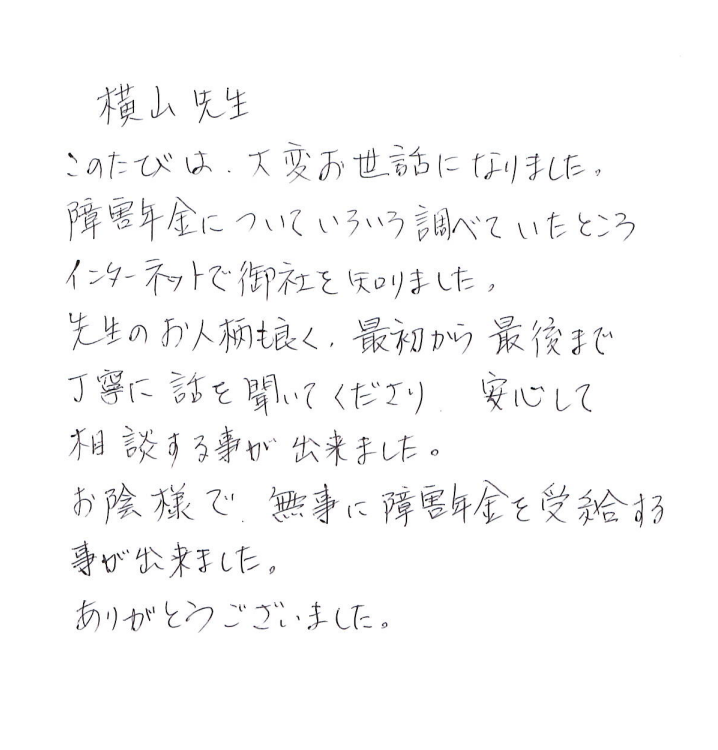 横山先生
このたびは、大変お世話になりました。
障害年金についていろいろ調べていたところ
インターネットで御社を知りました。
先生のお人柄も良く、最初から最後まで
丁寧に話を聞いてくださり、安心して
相談する事が出来ました。
お陰様で、無事に障害年金を受給する
事が出来ました。
ありがとうございました。